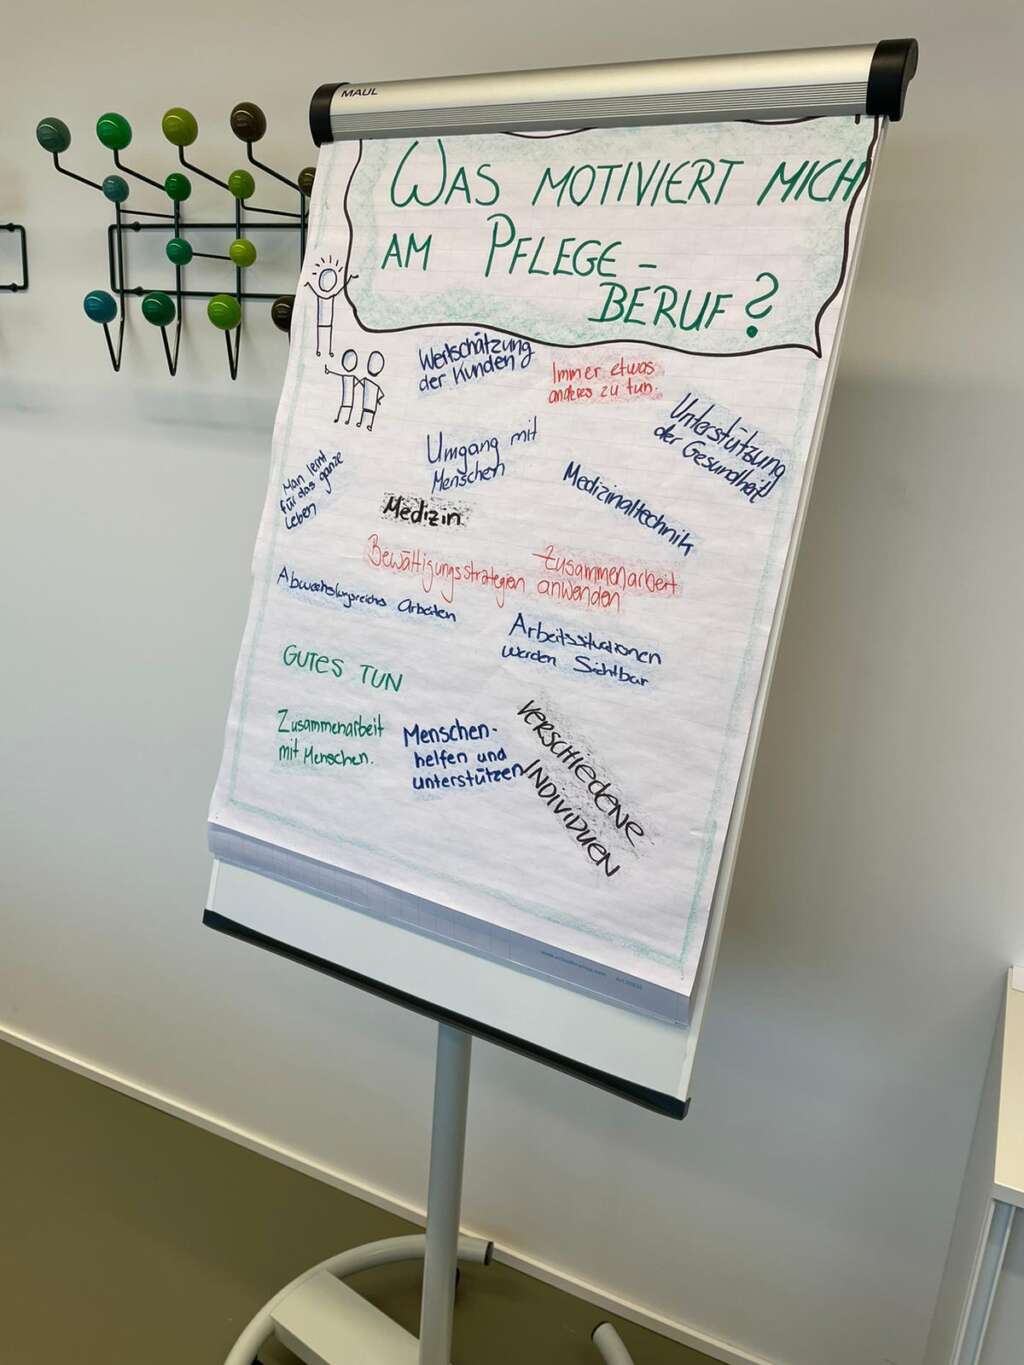 MAUL
WAS MOTIVIERT MICH
AM PFLEGE-
BERUF?
Wertschätzung
der Kunden
Immer etwas
anderes zu tun.
Unterstützung
der Gesundheit
Umgang mit
Menschen
Man lernt
für das ganze
Leben
Medizinaltechnik
Medizin
Bewältigungsstrategien anwenden
Zusammenarbeit
Abwechslungsreiches Arbeiten
Arbeitssituationen
werden Sichtbar
GUTES TUN
Zusammenarbeit
mit Menschen.
Menschen-
helfen und
unterstützen
VERSCHIEDENE
INDIVIDUEN